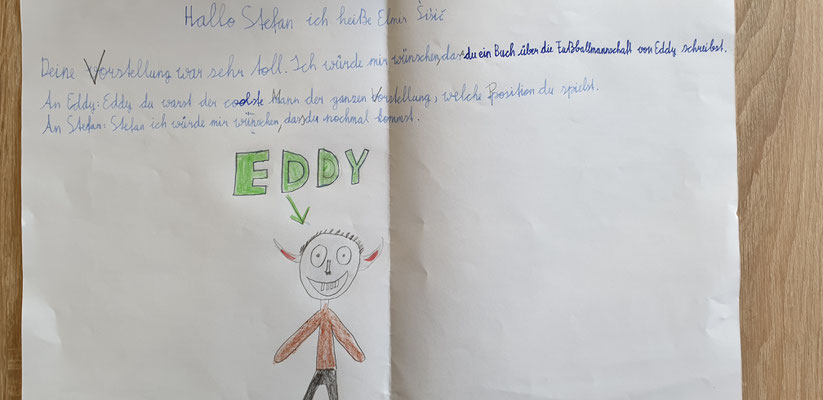 Hallo Stefan ich heiße Elmir Šišić
Deine Vorstellung war sehr toll. Ich würde mir wünschen, dass du ein Buch über die Fußballmannschaft von Eddy schreibst.
An Eddy: Eddy du warst der coolste Mann der ganzen Vorstellung, welche Position du spielst.
An Stefan: Stefan ich würde mir wünschen, dass du nochmal kommst.
EDDY